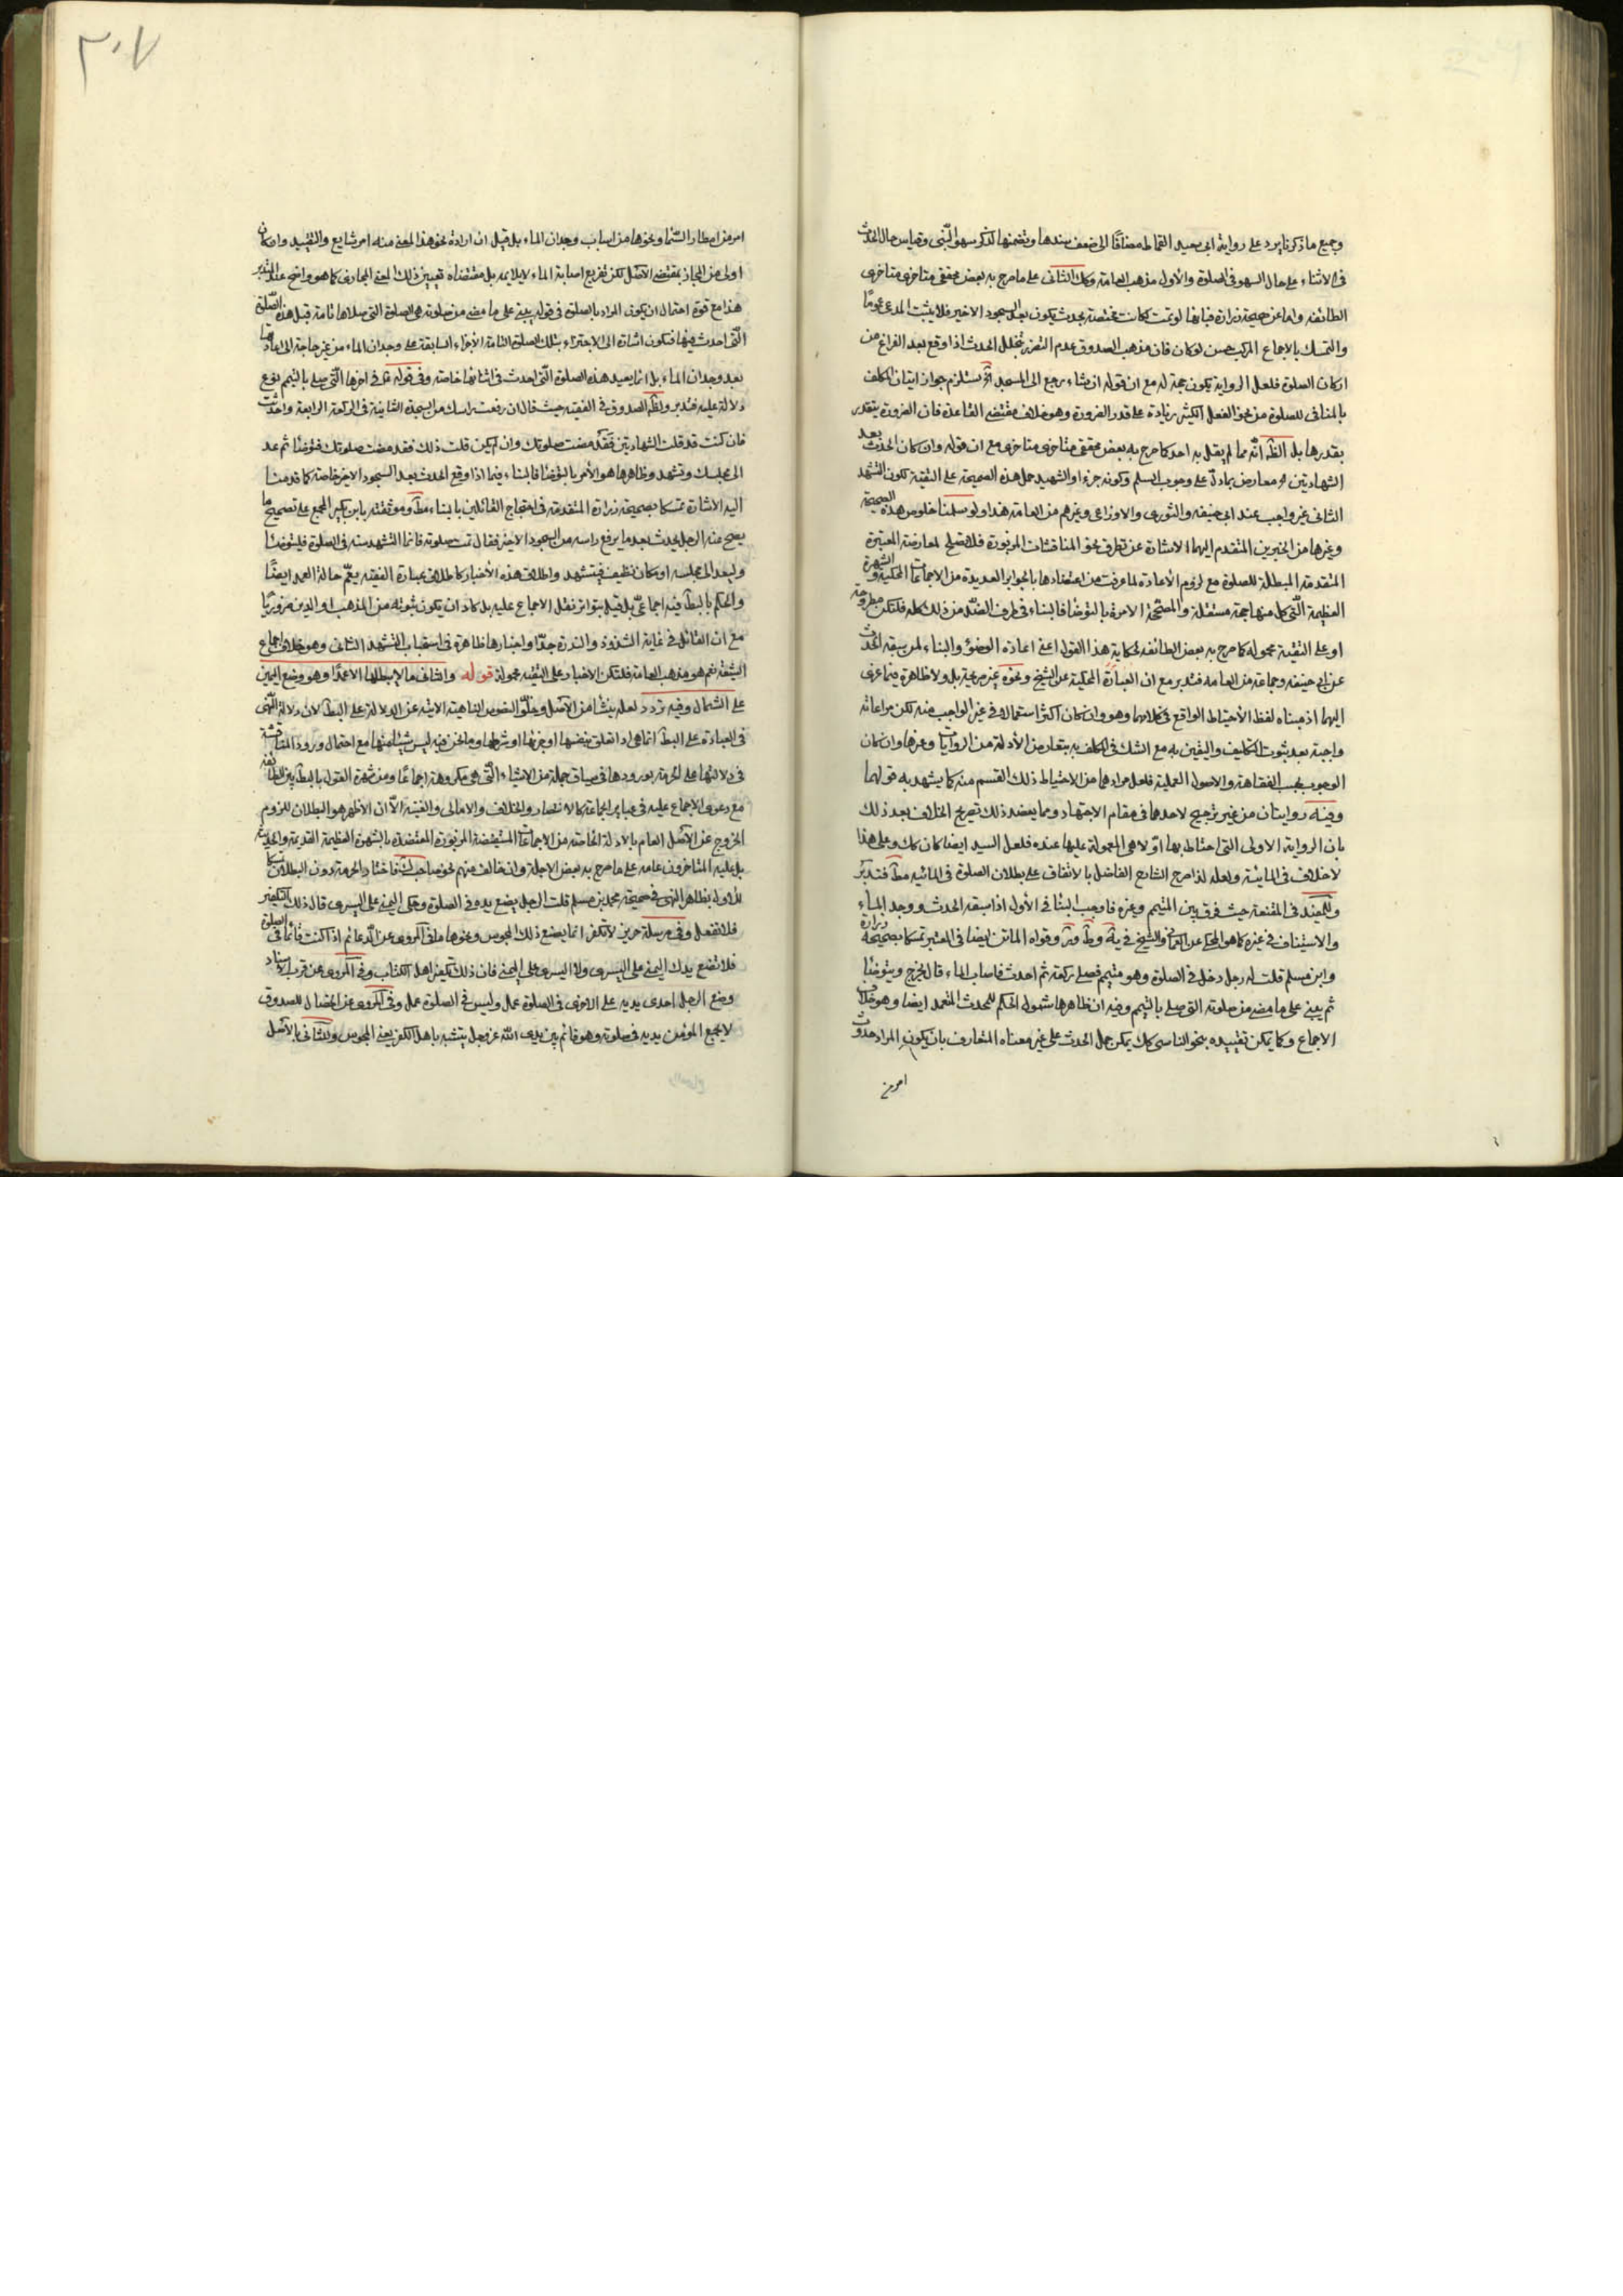 وجميع ما ذكرنا يرد على رواية ابى سعيد القماط مضافا الى ضعف سندها وتضمنها لذكر سهو النبى وقياس حال الحدث
فى الاثناء على حال السهو فى الصلوة والأول مذهب العامة وكك الثانى على ما صرح به بعض محققى متاخرى متاخرى
الطائفه واما عن صحيحة زرارة فبانها لو تمت لكانت مختصة بحدث يكون بعد السجود الاخير فلا يثبت المدعى عموما
والتمسك بالاجماع المركب حسن لو كان فان مذهب الصدوق عدم الضرر بتخلل الحدث اذا وقع بعد الفراغ من
اركان الصلوة فلعل الرواية يكون حجة له مع ان قوله ان شاء يرجع الى المسجد يستلزم جواز اتيان المكلف
بالمنافى للصلوة من نحو الفعل الكثير زيادة على قدر الضرورة وهو خلاف مقتضى القاعدة فان الضرورة يتقدر
بقدرها بل الظ انه مما لم يقل به احد كما صرح به بعض محققى متاخرى متاخرى مع ان قوله وان كان الحدث بعد
الشهادتين معارض بما دل على وجوب التسليم وكونه جزءا والشهيد حمل هذه الصحيحة على التقية لكون التشهد
الثانى غير واجب عند ابى حنيفه والثورى والاوزاعى وغيرهم من العامة هذا ولو سلمنا خلوص هذه الصحيحة
وغيرها من الخبرين المتقدم اليهما الاشارة عن تطرق نحو المناقشات المزبورة فلا تصلح لمعارضة المعتبرة
المتقدمة المبطلة للصلوة مع لزوم الأعادة لما عرفت من اعتضادها بالجوابر العديدة من الاجماعات المحكية والشهرة
العظيمة التى كل منها حجة مستقلة والمصححة الامرة بالتوضا فالبناء فى طرف الضد من ذلك كله فلتكن مطروحة
او على التقية محمولة كما صرح به بعض الطائفه لحكاية هذا القول اعنى اعادة الوضوء والبناء لمن سبقه الحدث
عن ابى حنيفه وجماعة من العامه فتدبر مع ان العبارة المحكية عن الشيخ ونحوه غير صريحة بل ولا ظاهرة فيما عزى
اليهما اذ مبناه لفظ الأحتياط الواقع فى كلامهما وهو وان كان اكثر استعماله فى غير الواجب منه لكن مراعاته
واجبة بعد ثبوت التكليف واليقين به مع الشك فى المكلف به بتعارض الأدلة من الروايات وغيرها وان كان
الوجوب بحسب الفقاهة والاصول العملية فلعل مرادهما من الاحتياط ذلك القسم منه كما يشهد به قولهما
وفيه روايتان من غير ترجيح لاحدهما فى مقام الاجتهاد ومما يعضد ذلك تصريح الخلاف بعد ذلك
بان الرواية الاولى التى احتاط بها اولا هى المعمولة عليها عنده فلعل السيد ايضا كان كك وعلى هذا
لا خلاف فى المايية ولعله لذا صرح الشارح الفاضل بالاتفاق على بطلان الصلوة فى المائيه مط فتدبر
وللمفيد فى المقنعة حيث فرق بين المتيمم وغيره فاوجب البناء فى الأول اذا سبقه الحدث ووجد الماء
والاستيناف فى غيره كما هو المحكى عن العمانى والشيخ فى ية وط وقواه الماتن ايضا فى المعتبر تمسكا بصحيحة زرارة
وابن مسلم قلت له رجل دخل فى الصلوة وهو متيمم فصلى ركعة ثم احدث فاصاب الماء قال يخرج ويتوضا
ثم يبنى على ما مضى من صلوته التى صلى بالتيمم وفيه ان ظاهرها شمول الحكم للمحدث المتعمد ايضا وهو خلاف
الاجماع وكما يمكن تقييده بنحو الناسى كك يمكن حمل الحدث على غير معناه المتعارف بان يكون المراد حدوث
امر من
٣٠٧
امر من امطار السماء ونحوها من اسباب وجدان الماء بل قيل ان ارادة نحو هذا المعنى منه امر شايع والتقييد وان كان
اولى من المجاز بمقتضى الأصل لكن تفريع اصابة الماء لا يلايمه بل مقتضاه تعيين ذلك المعنى المجازى كما هو واضح عند المتدبر
هذا مع قوة احتمال ان يكون المراد بالصلوة فى قوله يبنى على ما مضى من صلوته هى الصلوة التى صلاها تامة قبل هذه الصلوة
التى احدث فيها فتكون اشارة الى الاجتزاء بتلك الصلوة التامة الأجزاء السابقة على وجدان الماء من غير حاجة الى اعادتها
بعد وجدان الماء بل انما يعيد هذه الصلوة التى احدث فى اثنائها خاصة وفى قوله فى اخرها التى صلى بالتيمم نوع
دلالة عليه فتدبر وللصدوق فى الفقيه حيث قال ان رفعت راسك من السجدة الثانية فى الركعة الرابعة واحدثت
فان كنت قد قلت الشهادتين فقد مضت صلوتك وان لم يكن قلت ذلك فقد مضت صلوتك فتوضا ثم عد
الى مجلسك وتشهد وظاهرها هو الأمر بالتوضا فالبناء فيما اذا وقع الحدث بعد السجود الاخير خاصة كما قدمنا
اليه الاشارة تمسكا بصحيحة زرارة المتقدمة فى احتجاج القائلين بالبناء مط وموثقته بابن بكير المجمع على تصحيح ما
يصح عنه الرجل يحدث بعد ما يرفع راسه من السجود الاخير فقال تمت صلوته فانما التشهد سنة فى الصلوة فليتوضا
وليعد الى مجلسه او مكان نظيف فيتشهد واطلاق هذه الأخبار كاطلاق عبارة الفقيه يعم حالة العمد ايضا
والحكم بالبط فيه اجماعى بل قيل بتواتر نقل الاجماع عليه بل كاد ان يكون ثبوته من المذهب او الدين ضروريا
مع ان القائل فى غاية الشذوذ والندرة جدا واخبارها ظاهرة فى استحباب التشهد الثانى وهو خلاف اجماع
الشيعة نعم هو مذهب العامة فلتكن الاخبار على التقية محمولة قوله والثانى ما لا يبطلها الا عمدا وهو وضع اليمين
على الشمال وفيه تردد لعله ينشا من الأصل وخلو النصوص الناهية الاتية عن الدلالة على البط لان دلالة النهى
فى العبادة على البط انما هى اذا تعلق بنفسها او بجزئها او شرطها وما نحن فيه ليس شيئا منها مع احتمال ورود المناقشة
فى دلالتها على الحرمة بورودها فى سياق جملة من الاشياء التى هى مكروهة اجماعا ومن شهرة القول بالبط بين الطائفه
مع دعوى الاجماع عليه فى عباير الجماعة كالانتصار والخلاف والامالى والغنية الا ان الاظهر هو البطلان للزوم
الخروج عن الأصل العام بالادلة الخاصة من الاجماعات المستفيضة المزبورة المعتضدة بالشهرة العظيمة القديمة والحديثة
بل عليه المتاخرون عامه على ما صرح به بعض الاجلة وان خالف منهم نحو صاحب ك فاختار الحرمة دون البطلان تمسكا
للأول بظاهر النهى فى صحيحة محمد بن مسلم قلت الرجل يضع يده فى الصلوة وحكى اليمنى على اليسرى قال ذلك التكفير
فلا تفعل وفى مرسلة حريز لا تكفر انما يصنع ذلك المجوس ونحوها ما فى المروى عن الدعائم اذا كنت قائما فى الصلوة
فلا تضع يدك اليمنى على اليسرى ولا اليسرى على اليمنى فان ذلك تكفير اهل الكتاب وفى المروى عن قرب الاسناد
وضع الرجل احدى يديه على الاخرى فى الصلوة عمل وليس فى الصلوة عمل وفى المروى عن الخصال للصدوق
لا يجمع المؤمن يديه فى صلوته وهو قائم بين يدى الله عز وجل يتشبه باهل الكفر يعنى المجوس وللثانى بالأصل